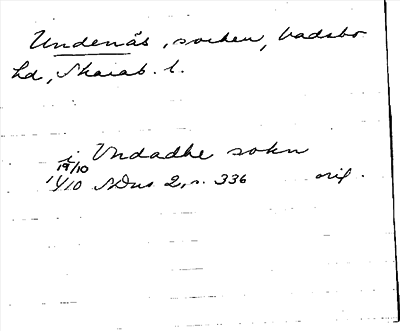 Undenäs, socken, Vadsbo
hd, Skarab. l.
i Vndadhe sokn
19/10
1410 SDns 2, s. 336 orig.